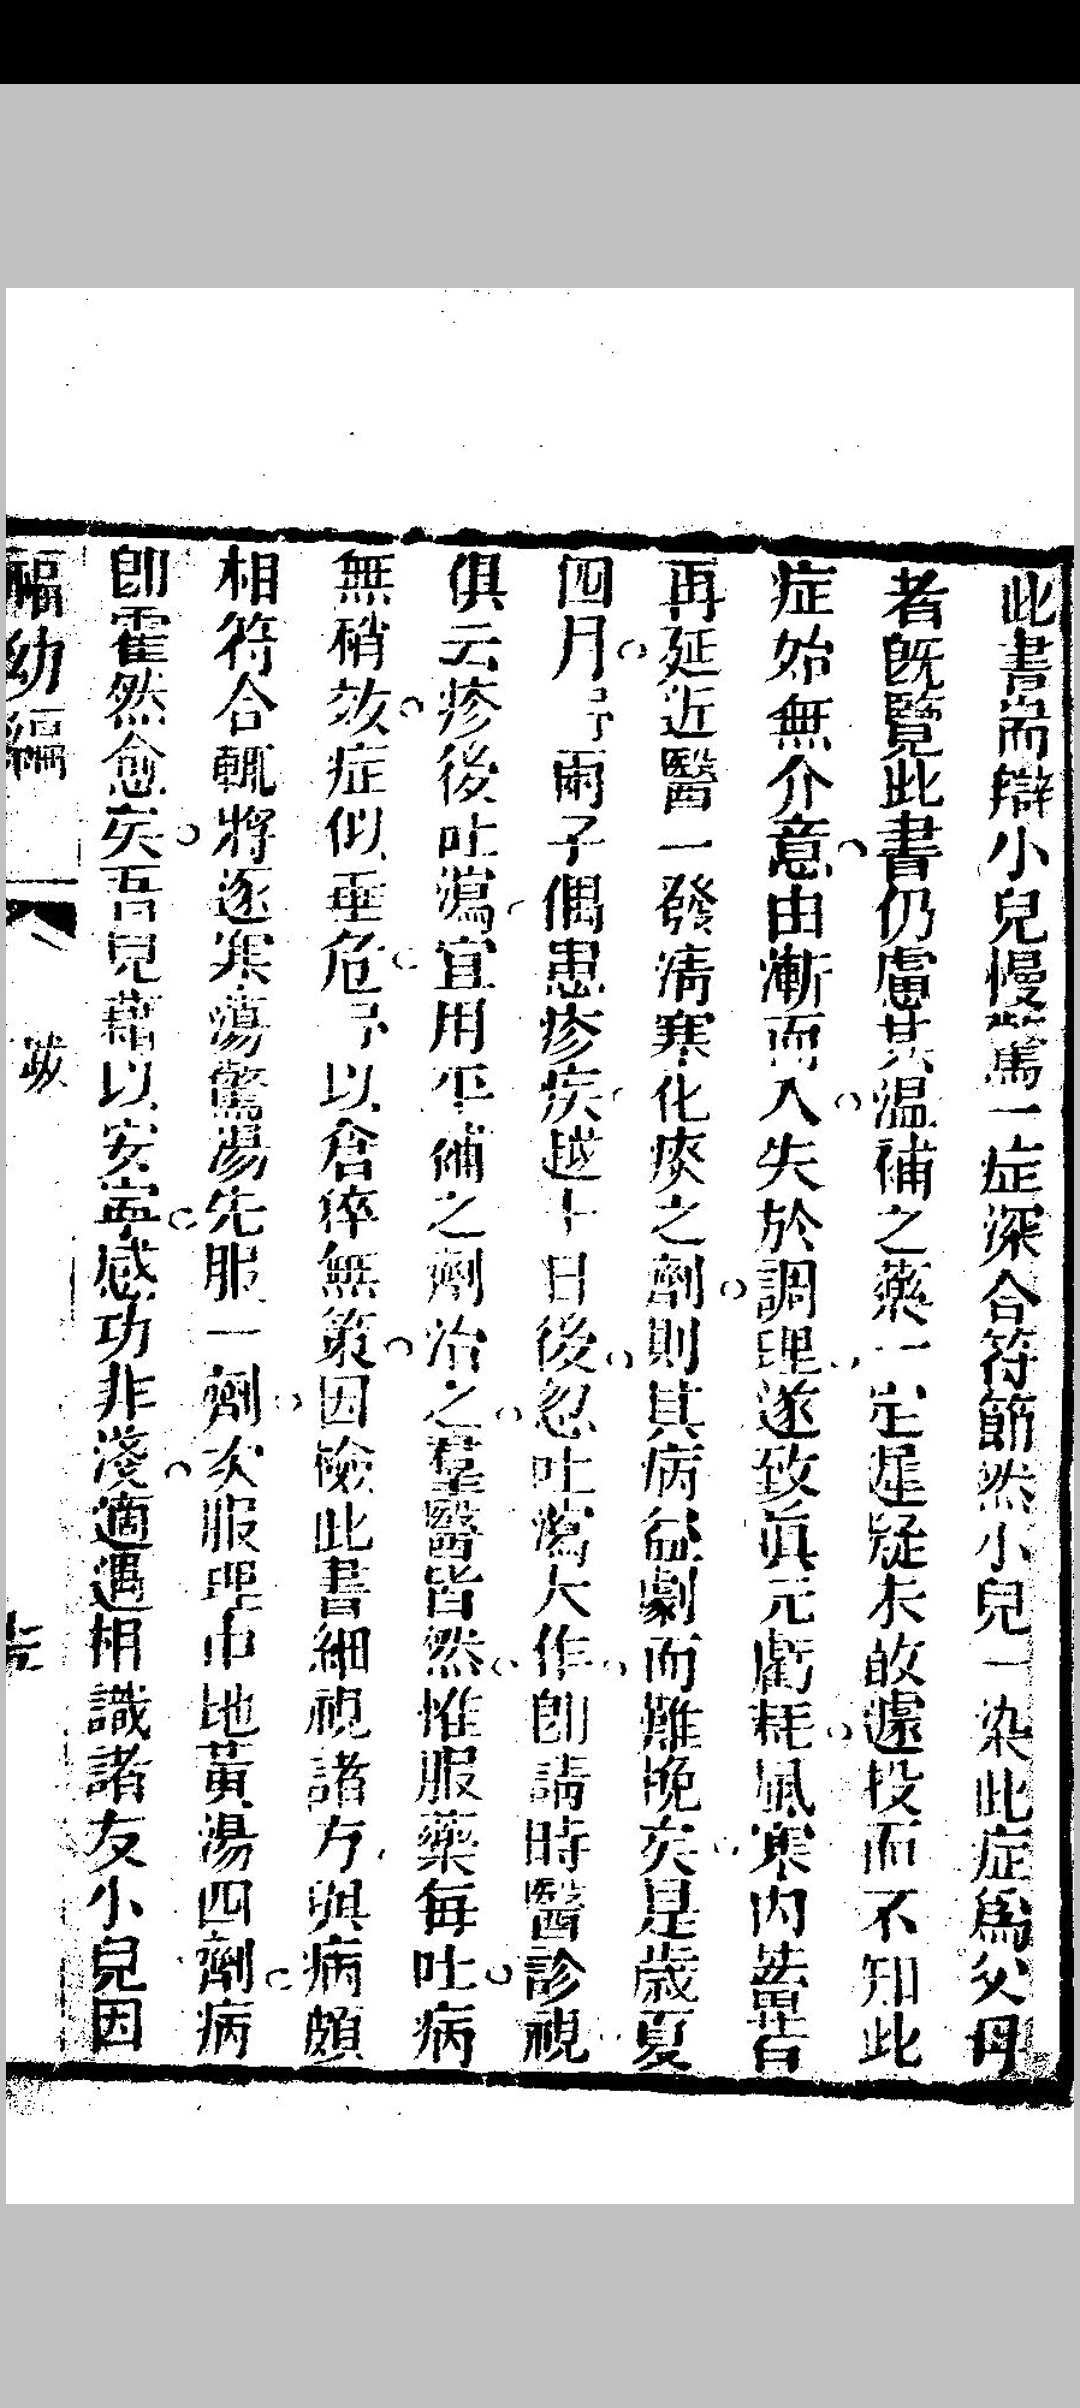 此書耑辯小兒慢驚一症深合符節然小兒一染此症爲父母
者旣覽此書仍慮其温補之藥一定遲疑未敢遽投而不知此
症始無介意由漸而入失於調理遂致眞元虧耗風寒内
再延近醫一發清寒化痰之劑則其病益劇而難挽矣是歳夏
四月予兩子偶患疹疾越十日後忽吐瀉大作卽請時醫診視
俱云疹後吐瀉宜用平補之劑治之羣醫皆然惟服藥每吐病
無稍效症似垂危予以倉猝無策因檢此書細視諸方與病頗
相符合輒將逐寒蕩驚湯先服一劑次服理中地黃湯四劑病
卽霍然愈矣吾兒藉以安寧感功非淺適遇相識諸友小兒因
福幼編
跋